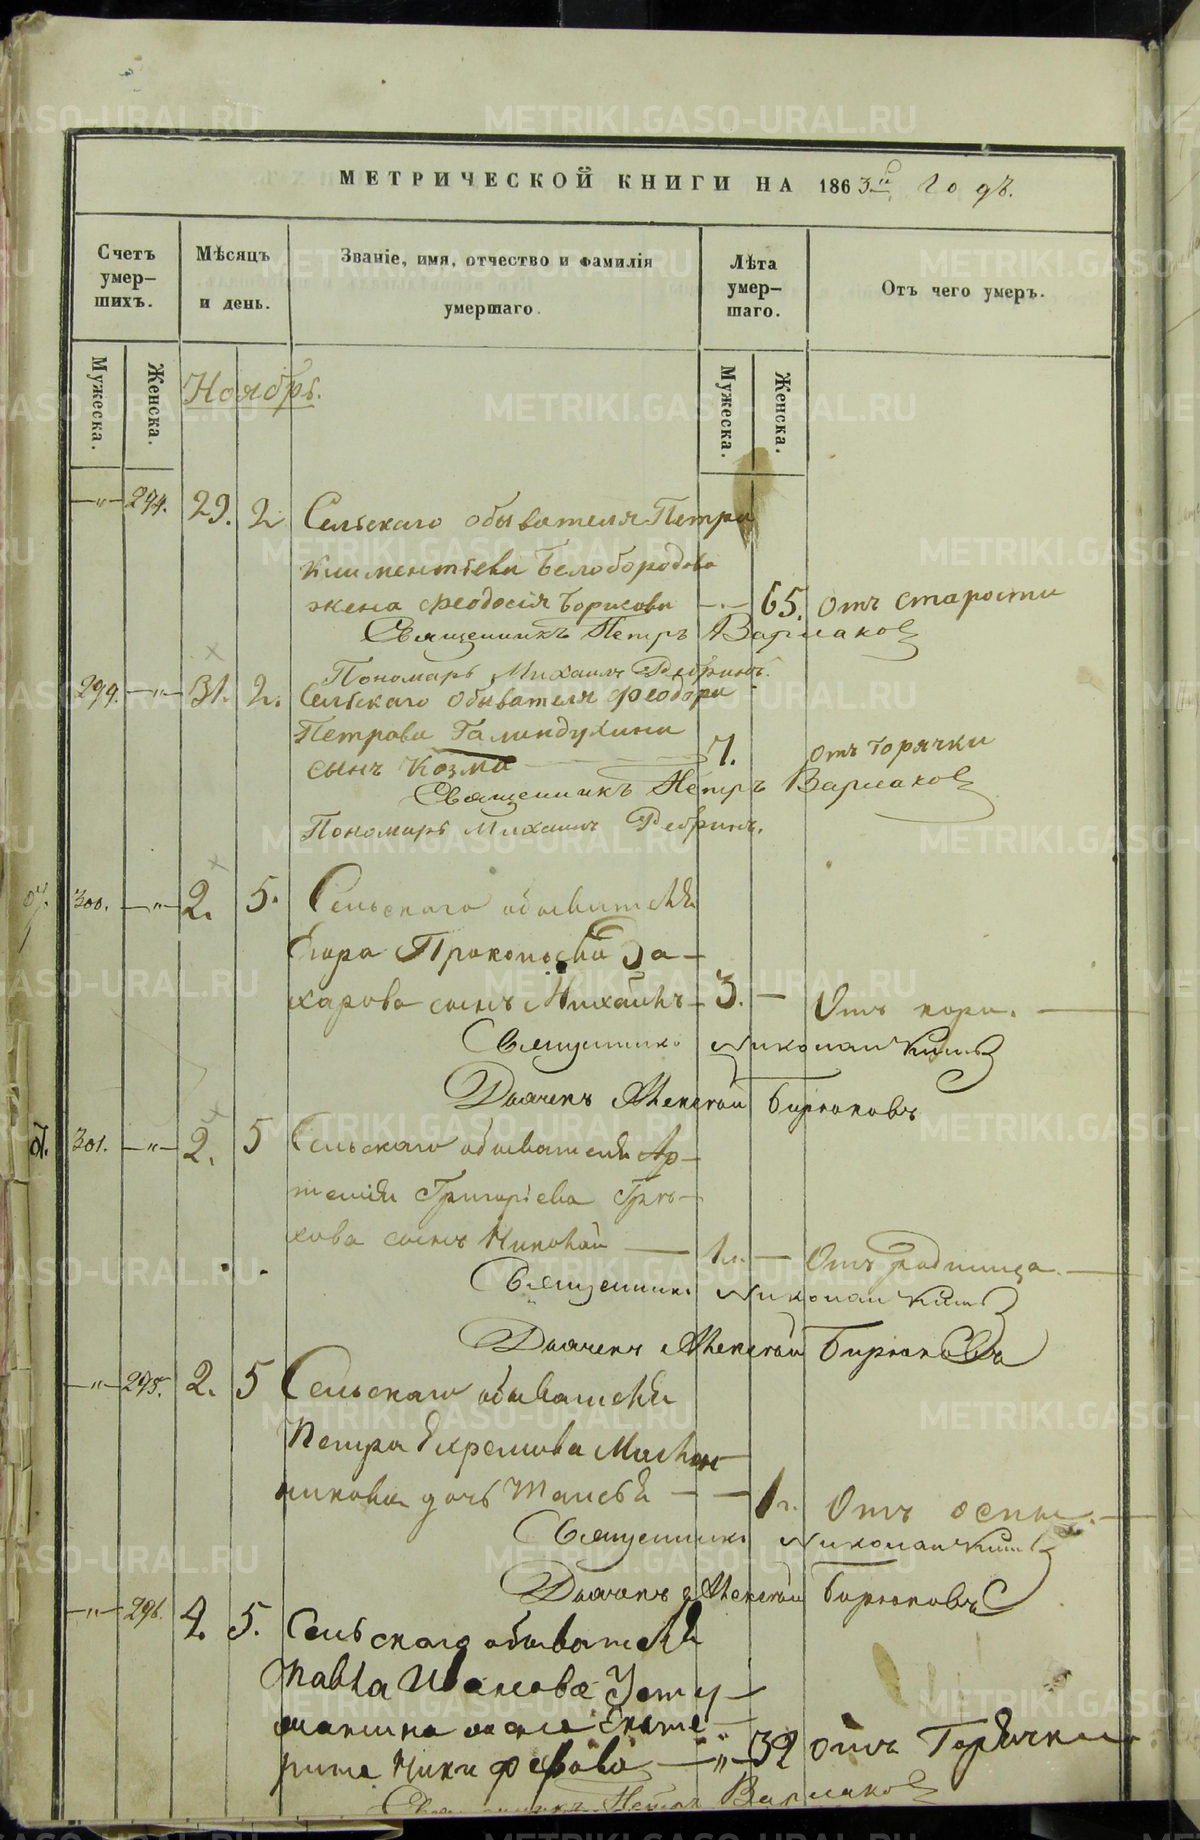 МЕТРИЧЕСКОЙ КНИГИ НА 1863й годъ.
Счетъ умер-шихъ.
Мужеска.
Женска.
Мѣсяцъ и день.
Званіе, имя, отчество и фамилія умершаго.
Лѣта умер-шаго.
Мужеска.
Женска.
Отъ чего умеръ.
Ноябрь.
—"— 294. 29. 2 Сельскаго обывателя Петра
Климентіева Белобородова
жена Феодосія Борисова — 65. отъ старости
Священникъ Петръ Варлаковъ
Пономарь Михаилъ Ребринъ.
299. —"— 31. 2. Сельскаго обывателя Феодора
Петрова Галандухина
сынъ Козма — 7. отъ горячки
Священникъ Петръ Варлаковъ
Пономарь Михаилъ Ребринъ.
300. —"— 2. 5. Сельскаго обывателя
Егора Прокопьева За-
харова сынъ Михаилъ — 3. — Отъ кори.
Священникъ Николай
Дьячекъ Алексѣй Бирюковъ
301. —"— 2. 5 Сельскаго обывателя Ар-
темія Григорьева Грѣ-
хова сынъ Николай — 1м. — Отъ родимца.
Священникъ Николай
Дьячекъ Алексѣй Бирюковъ
—"— 295. 2. 5 Сельскаго обывателя
Петра Ефремова
дочь Таисья — — 1г. Отъ оспы.
Священникъ Николай
Дьячекъ Алексѣй Бирюковъ
—"— 296. 4. 5. Сельскаго обывателя
Павла Иванова
жена Екате-
рина Никифорова —"— 32 отъ Горячки
Священникъ Петръ Варлаковъ
METRIKI.GASO-URAL.RU